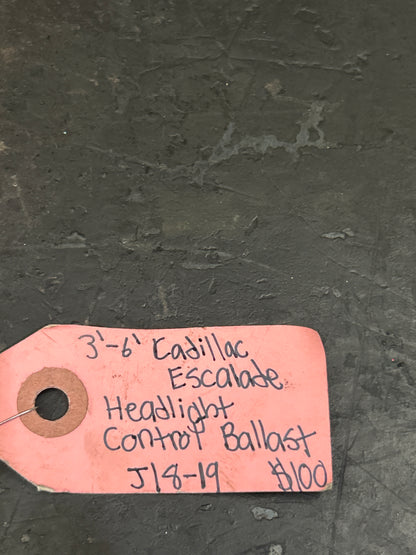 3'-6' Cadillac
Escalade
Headlight
Control Ballast
J18-19 $100